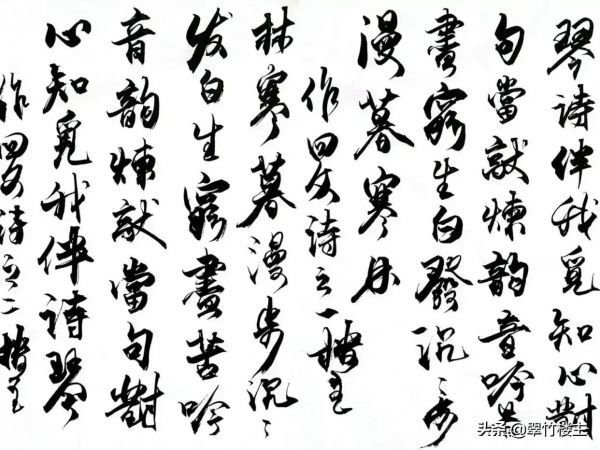 琴诗伴我覓知心對
句當敲煉韵音吟苦
盡窮生白發沉〻步
漫暮寒林
作回文诗之一
林寒暮漫步沉〻
发白生窮盡苦吟
音韵煉敲當句對
心知覓我伴诗琴
作回文诗之二
头条@翠竹楼主